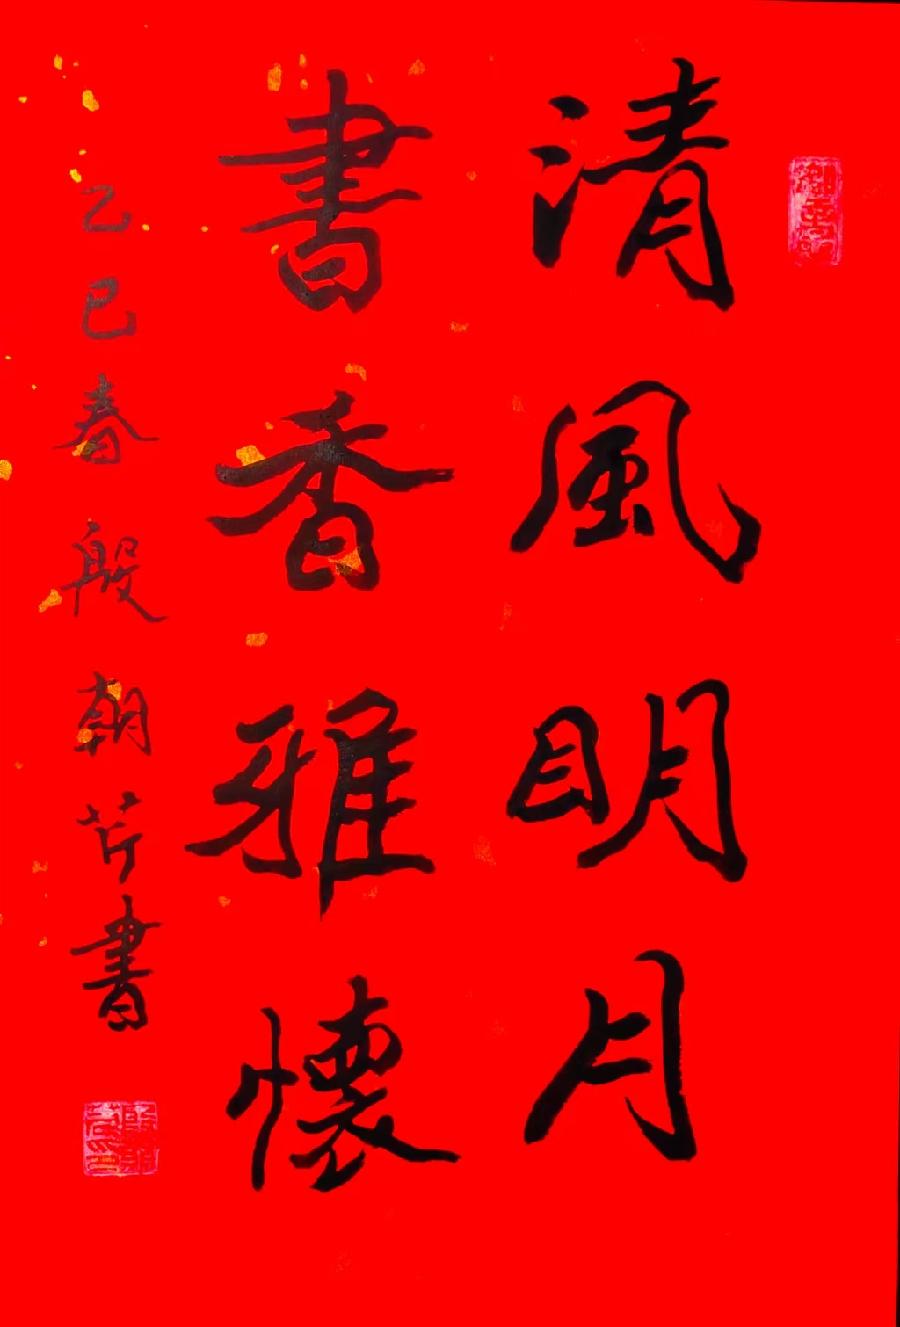 清風明月
書香雅懷
乙巳春 殷朝芹書